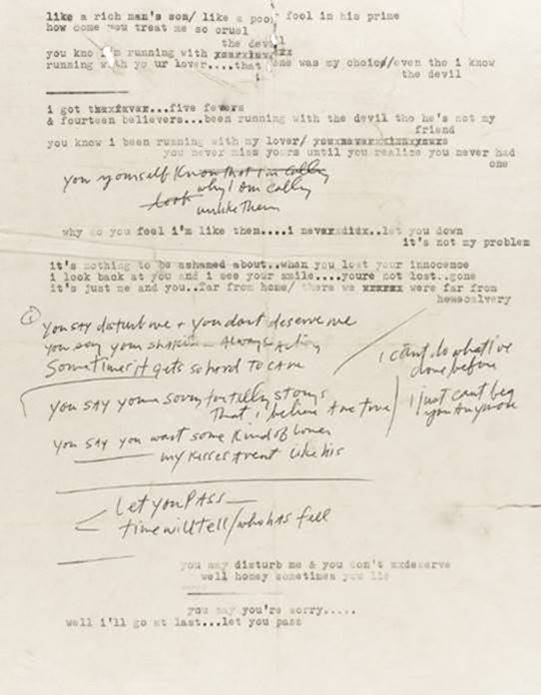 like a rich man's son/ like a poor fool in his prime
how come you treat me so cruel
the devil
you kno i'm running with
running with yo ur lover....that one was my choice//even tho i know
the devil
i got ...five fevers
& fourteen believers...been running with the devil tho he's not my
friend
you know i been running with my lover/
you never miss yours until you realize you never had
one
you yourself Know that I'm calling
look why I am calling
unlike them
why do you feel i'm like them....i never didx..let you down
it's not my problem
it's nothing to be ashamed about..when you lost your innocence
i look back at you and i see your smile....youre not lost..gone
it's just me and you..far from home/ there we were far from
hemscalvery
① you say disturb me + you dont deserve me
you say your shakin - Always Acting
Sometimes it gets so hard to care
i can't do what i've
done before
you say your sorry for telly storys
that i believe are true
I just cant beg
you Anymore
you say you want some Kind of Lover
my Kisses Arent Like his
Let you PASS
time will tell/who has fell
you may disturb me & you don't xxdeserve
well honey sometimes you lie
you say you're sorry.....
well i'll go at last...let you pass